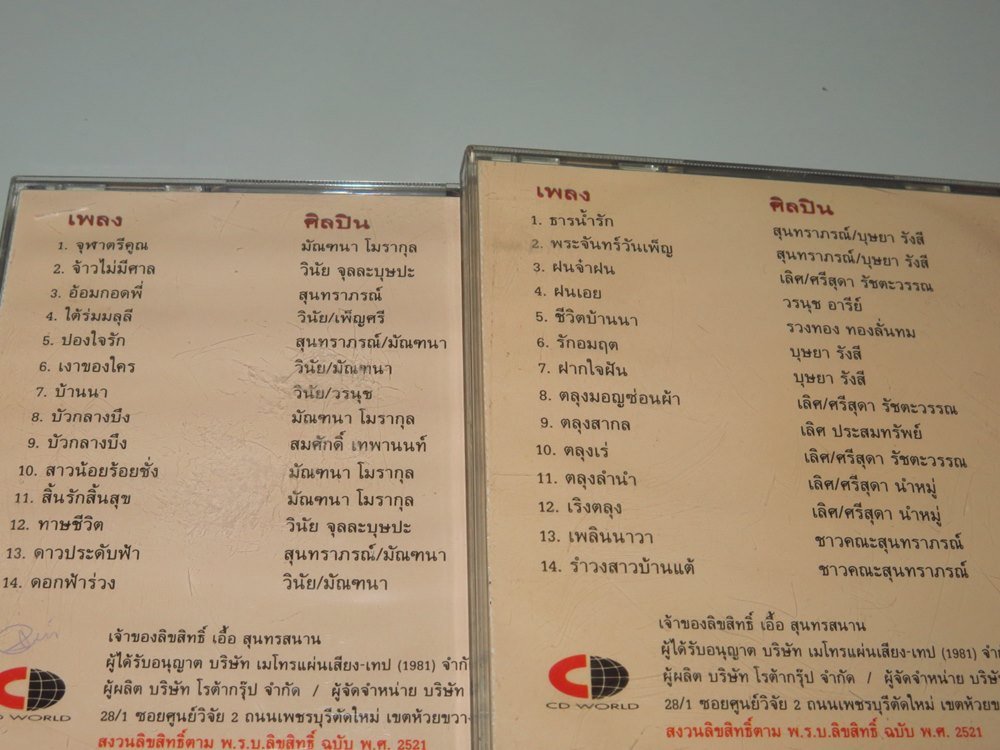 เพลง ศิลปิน
1. จุฬาตรีคูณ มัณฑนา โมรากุล
2. จ้าวไม่มีศาล วินัย จุลละบุษปะ
3. อ้อมกอดพี่ สุนทราภรณ์
4. ใต้ร่มมลุลี วินัย/เพ็ญศรี
5. ปองใจรัก สุนทราภรณ์/มัณฑนา
6. เงาของใคร วินัย/มัณฑนา
7. บ้านนา วินัย/วรนุช
8. บัวกลางบึง มัณฑนา โมรากุล
9. บัวกลางบึง สมศักดิ์ เทพานนท์
10. สาวน้อยร้อยชั่ง มัณฑนา โมรากุล
11. สิ้นรักสิ้นสุข มัณฑนา โมรากุล
12. ทาษชีวิต วินัย จุลละบุษปะ
13. ดาวประดับฟ้า สุนทราภรณ์/มัณฑนา
14. ดอกฟ้าร่วง วินัย/มัณฑนา
เจ้าของลิขสิทธิ์ เอื้อ สุนทรสนาน
ผู้ได้รับอนุญาต บริษัท เมโทรแผ่นเสียง-เทป (1981) จำกั
ผู้ผลิต บริษัท โรต้ากรุ๊ป จำกัด / ผู้จัดจำหน่าย บริษัท
28/1 ซอยศูนย์วิจัย 2 ถนนเพชรบุรีตัดใหม่ เขตห้วยขวา
สงวนลิขสิทธิ์ตาม พ.ร.บ.ลิขสิทธิ์ ฉบับ พ.ศ. 2521
CD WORLD
เพลง ศิลปิน
1. ธารน้ำรัก สุนทราภรณ์/บุษยา รังสี
2. พระจันทร์วันเพ็ญ สุนทราภรณ์/บุษยา รังสี
3. ฝนจ๋าฝน เลิศ/ศรีสุดา รัชตะวรรณ
4. ฝนเอย วรนุช อารีย์
5. ชีวิตบ้านนา รวงทอง ทองลั่นทม
6. รักอมฤต บุษยา รังสี
7. ฝากใจฝัน บุษยา รังสี
8. ตลุงมอญซ่อนผ้า เลิศ/ศรีสุดา รัชตะวรรณ
9. ตลุงสากล เลิศ ประสมทรัพย์
10. ตลุงเร่ เลิศ/ศรีสุดา รัชตะวรรณ
11. ตลุงลำนำ เลิศ/ศรีสุดา นำหมู่
12. เริงตลุง เลิศ/ศรีสุดา นำหมู่
13. เพลินนาวา ชาวคณะสุนทราภรณ์
14. รำวงสาวบ้านแต้ ชาวคณะสุนทราภรณ์
เจ้าของลิขสิทธิ์ เอื้อ สุนทรสนาน
ผู้ได้รับอนุญาต บริษัท เมโทรแผ่นเสียง-เทป (1981) จำก
ผู้ผลิต บริษัท โรต้ากรุ๊ป จำกัด / ผู้จัดจำหน่าย บริษั
28/1 ซอยศูนย์วิจัย 2 ถนนเพชรบุรีตัดใหม่ เขตห้วยข
สงวนลิขสิทธิ์ตาม พ.ร.บ.ลิขสิทธิ์ ฉบับ พ.ศ. 2521
CD WORLD